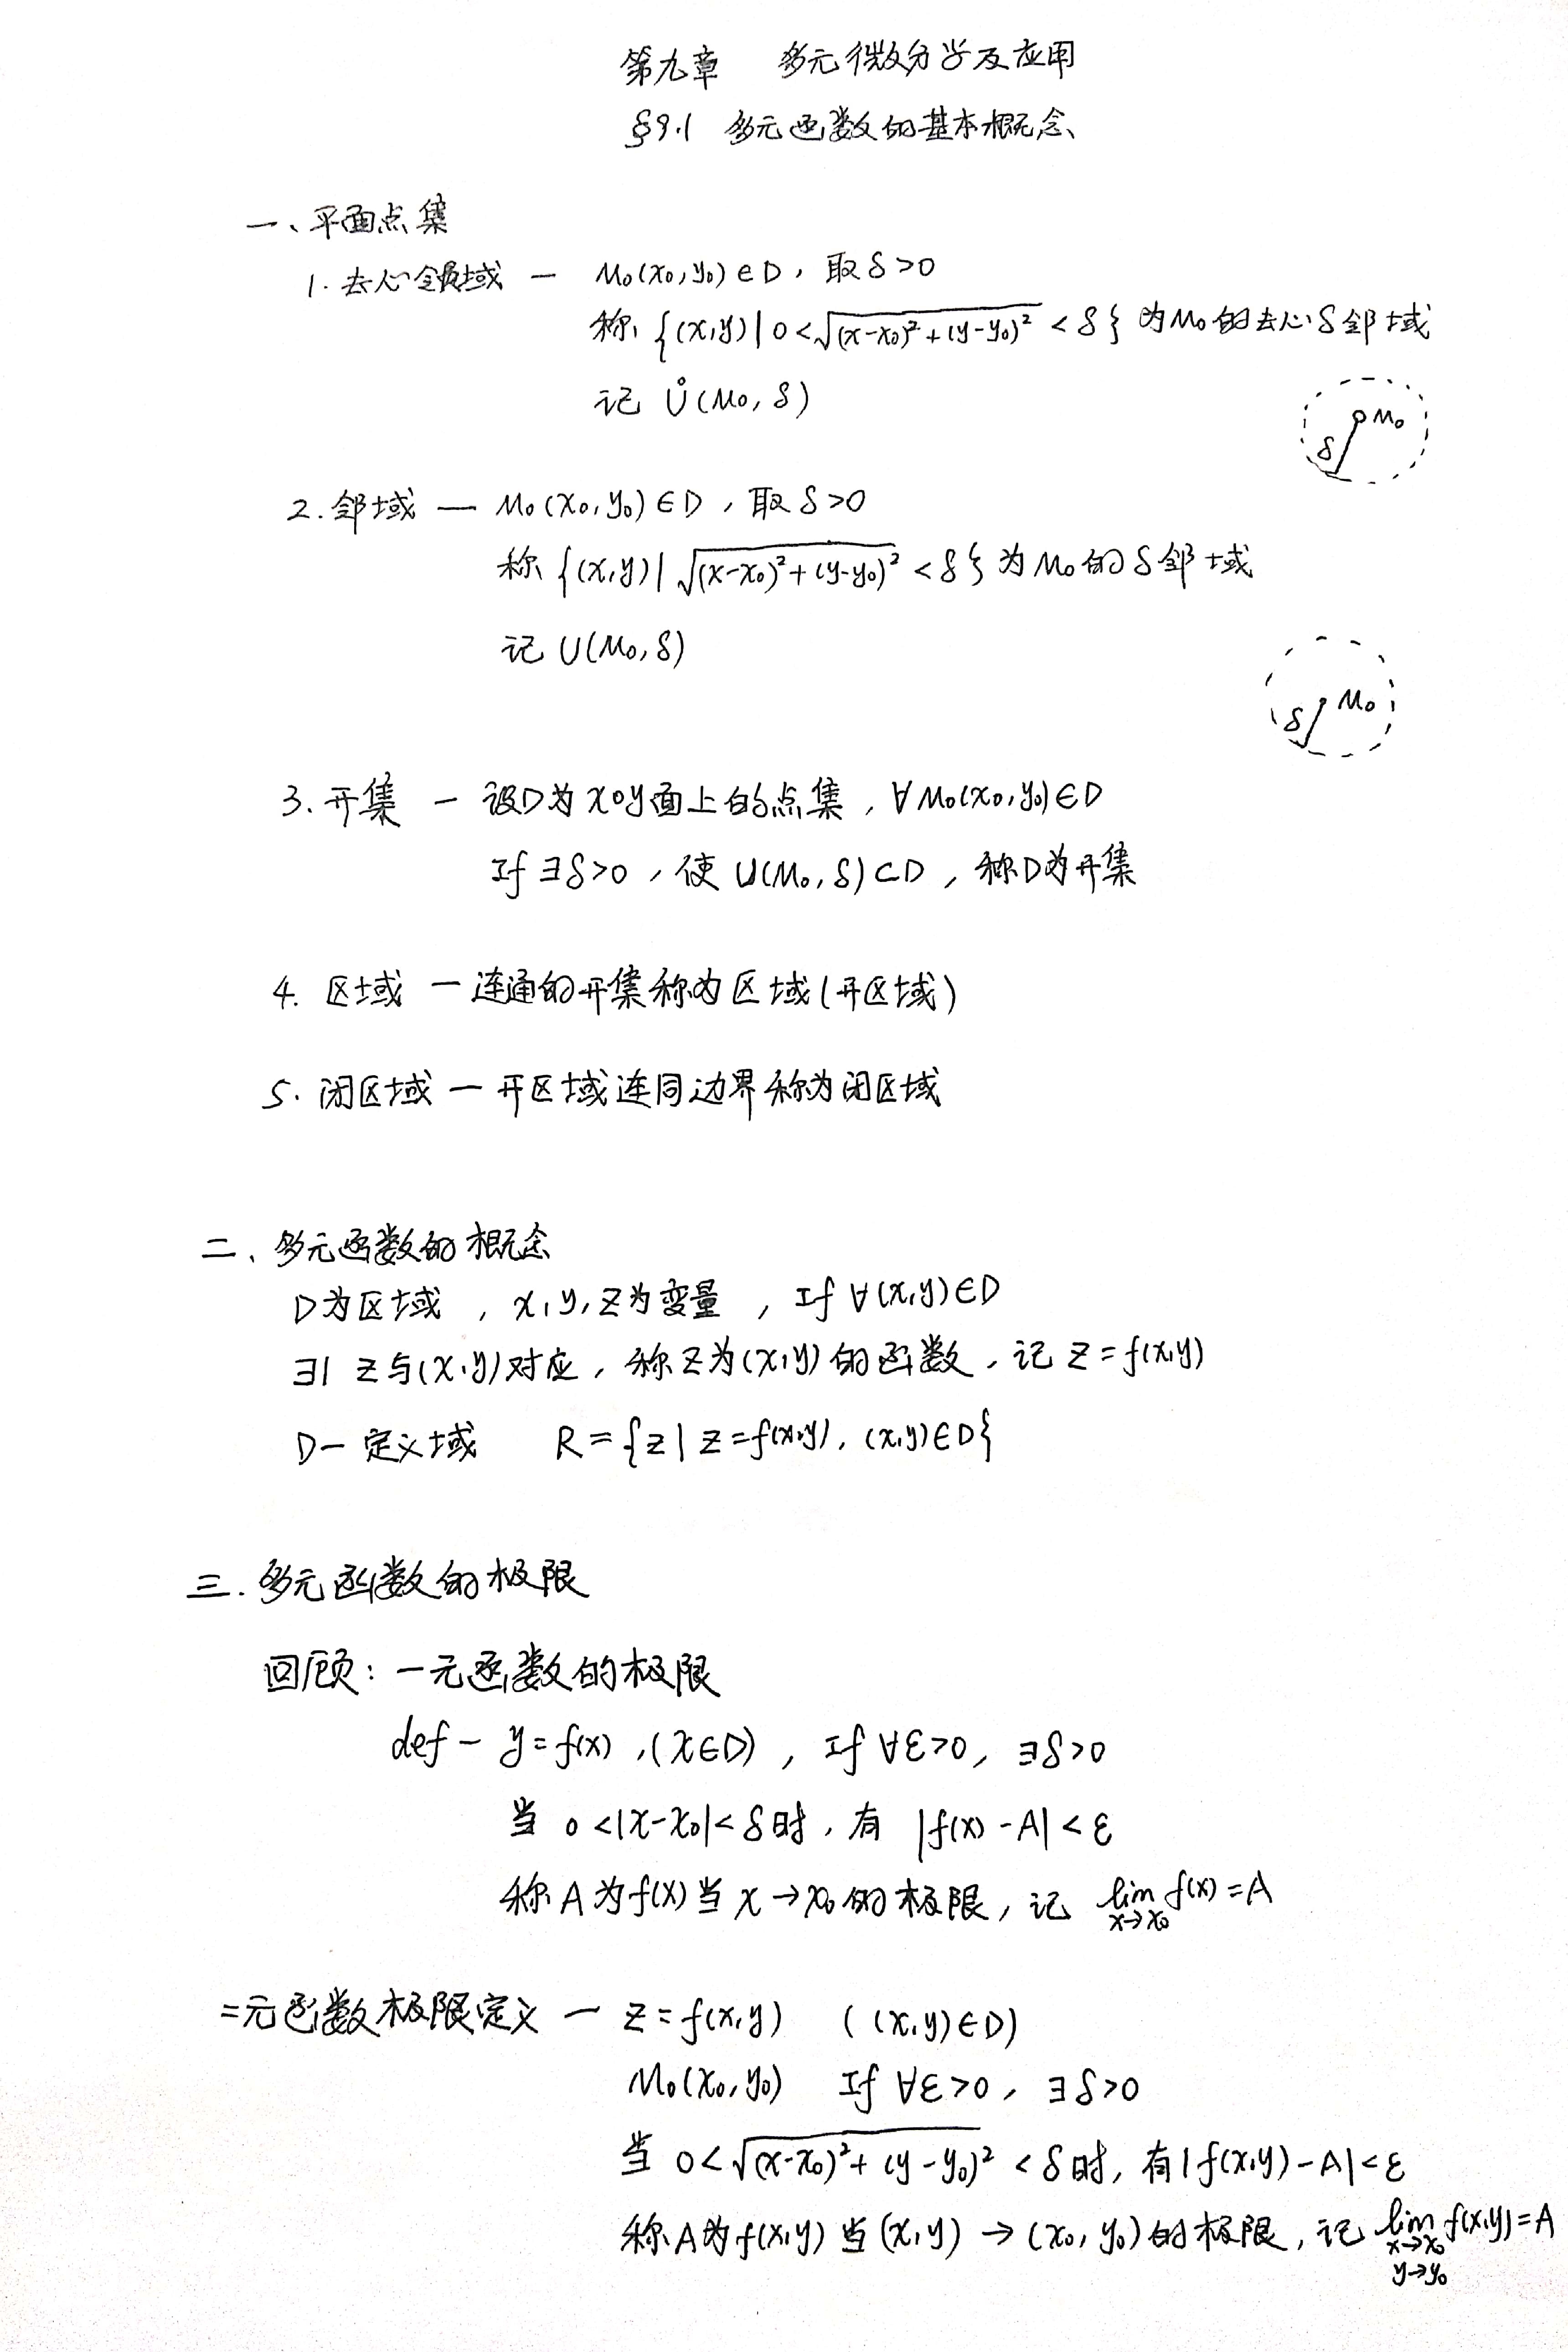 第九章 多元微分学及应用
§9.1 多元函数的基本概念
一、平面点集
1. 去心邻域 — M₀(x₀,y₀)∈D, 取δ>0
称 {(x,y)| 0<√((x-x₀)²+(y-y₀)²) <δ} 为M₀的去心δ邻域
记 Ů(M₀,δ)
M₀
δ
2. 邻域 — M₀(x₀,y₀)∈D, 取δ>0
称 {(x,y)| √((x-x₀)²+(y-y₀)²) <δ} 为M₀的δ邻域
记 U(M₀,δ)
M₀
δ
3. 开集 — 设D为xoy面上的点集, ∀M₀(x₀,y₀)∈D
If ∃δ>0, 使 U(M₀,δ)⊂D, 称D为开集
4. 区域 — 连通的开集称为区域(开区域)
5. 闭区域 — 开区域连同边界称为闭区域
二、多元函数的概念
D为区域, x,y,z为变量, If ∀(x,y)∈D
∃| z与(x,y)对应, 称z为(x,y)的函数, 记 z=f(x,y)
D— 定义域 R={z| z=f(x,y), (x,y)∈D}
三. 多元函数的极限
回顾: 一元函数的极限
def — y=f(x), (x∈D), If ∀ε>0, ∃δ>0
当 0<|x-x₀|<δ时, 有 |f(x)-A|<ε
称A为f(x)当x→x₀的极限, 记 lim f(x)=A
x→x₀
二元函数极限定义 — z=f(x,y) ((x,y)∈D)
M₀(x₀,y₀) If ∀ε>0, ∃δ>0
当 0<√((x-x₀)²+(y-y₀)²) <δ时, 有|f(x,y)-A|<ε
称A为f(x,y)当(x,y)→(x₀,y₀)的极限, 记 lim f(x,y)=A
x→x₀
y→y₀